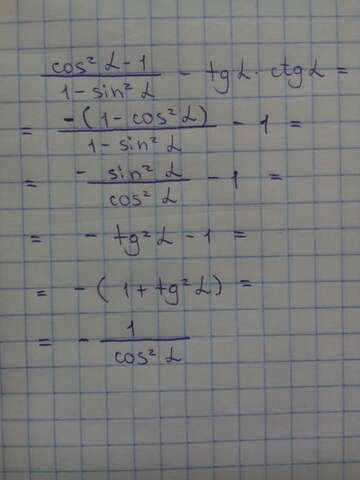 (cos² α - 1)/(1 - sin² α) - tg α · ctg α =
= (-(1 - cos² α))/(1 - sin² α) - 1 =
= - (sin² α)/(cos² α) - 1 =
= - tg² α - 1 =
= - (1 + tg² α) =
= - 1/(cos² α)